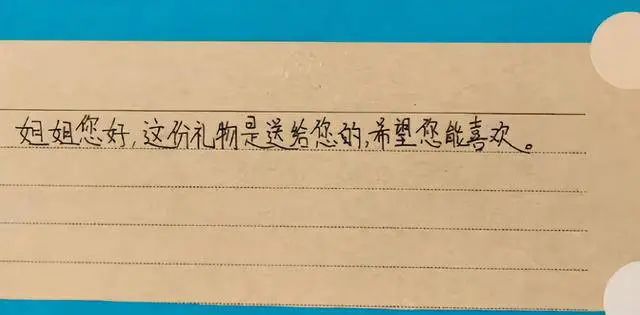 姐姐您好,这份礼物是送给您的,希望您能喜欢。